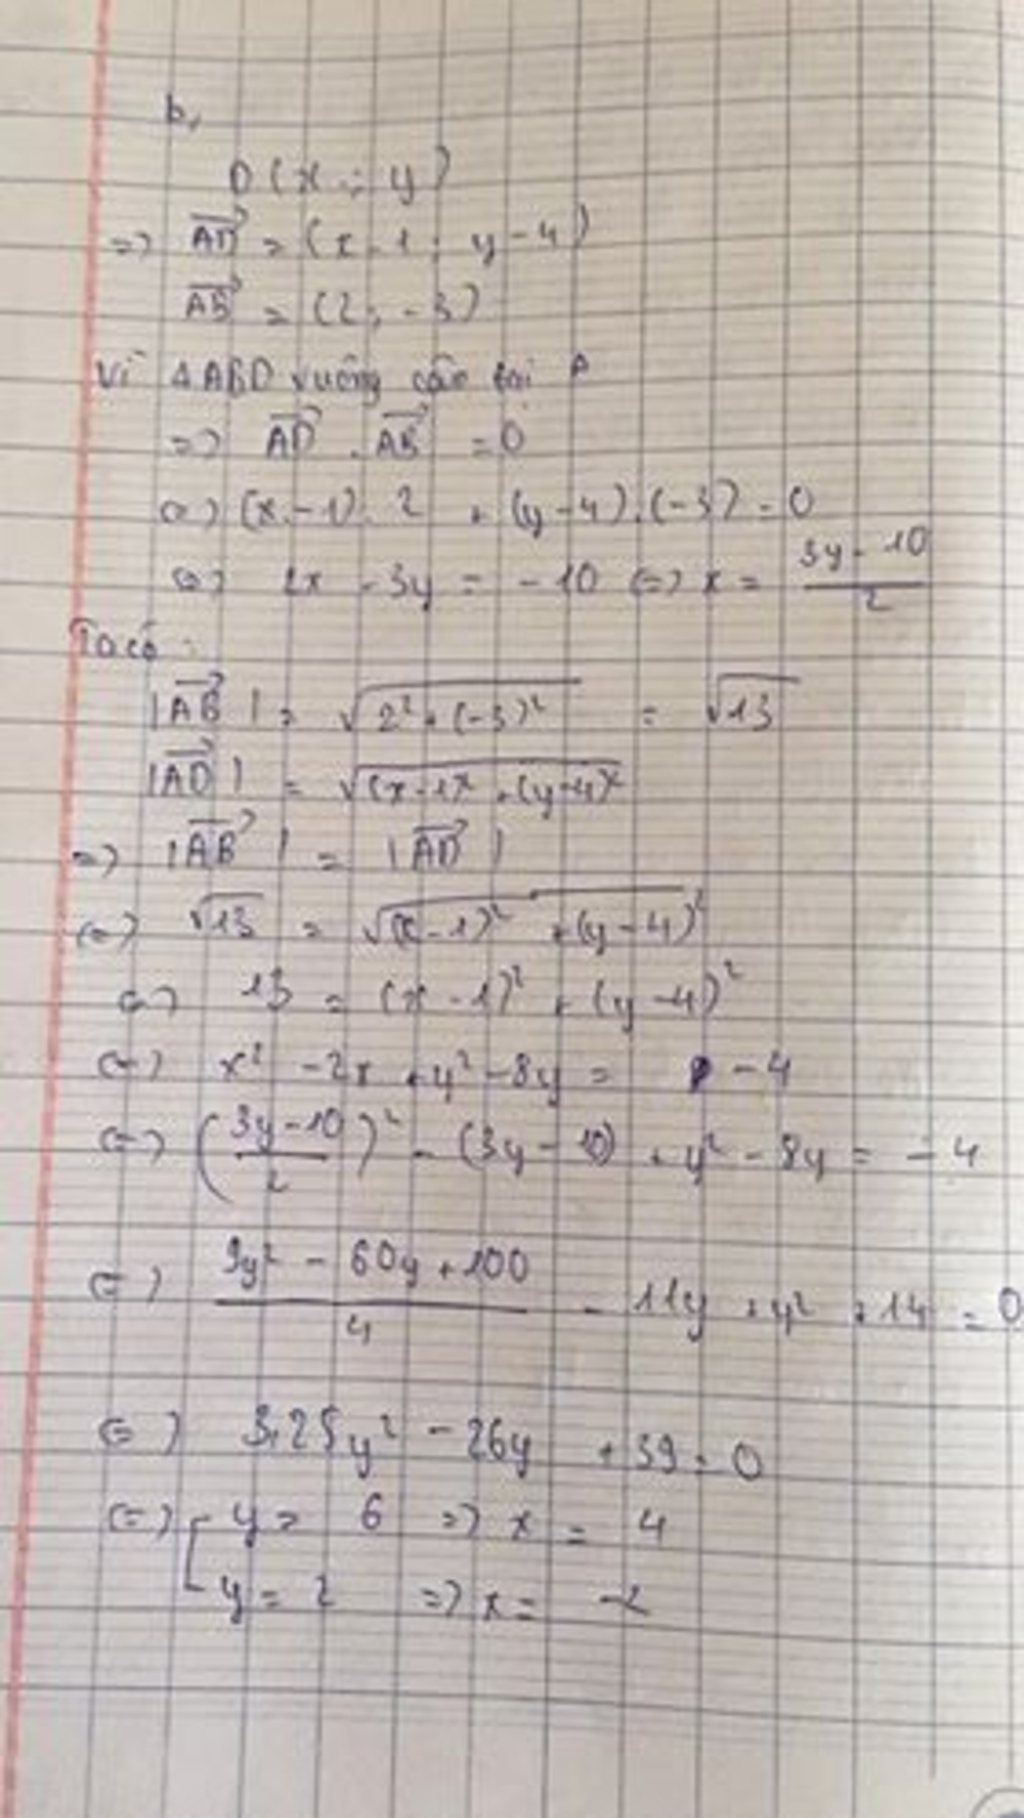 b,
D(x ; y)
=> AD = (x - 1 ; y - 4)
AB = (2 ; -3)
Vì ΔABD vuông cân tại A
=> AD . AB = 0
<=> (x - 1). 2 + (y - 4).(-3) = 0
<=> 2x - 3y = -10 <=> x = (3y - 10)/2
Ta có :
|AB| = √(2² + (-3)²) = √13
|AD| = √((x - 1)² + (y - 4)²)
=> |AB| = |AD|
<=> √13 = √((x - 1)² + (y - 4)²)
<=> 13 = (x - 1)² + (y - 4)²
<=> x² - 2x + y² - 8y = -4
<=> ((3y - 10)/2)² - (3y - 10) + y² - 8y = -4
<=> (9y² - 60y + 100)/4 - 11y + y² + 14 = 0
<=> 3,25y² - 26y + 39 = 0
<=> [ y = 6 => x = 4
y = 2 => x = -2